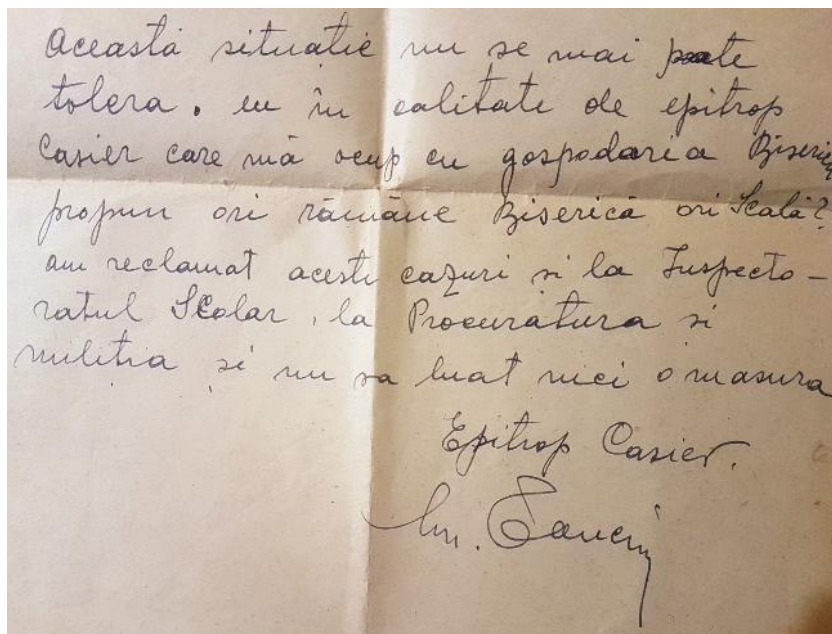 Această situație nu se mai poate
tolera. eu în calitate de epitrop
Casier care mă ocup cu gospodaria Biserici
propun ori rămâne Biserică ori Scală?
am reclamat aceste cazuri si la Inspecto-
ratul Scolar, la Procuratura si
militia și nu sa luat nici o masura
Epitrop Casier.